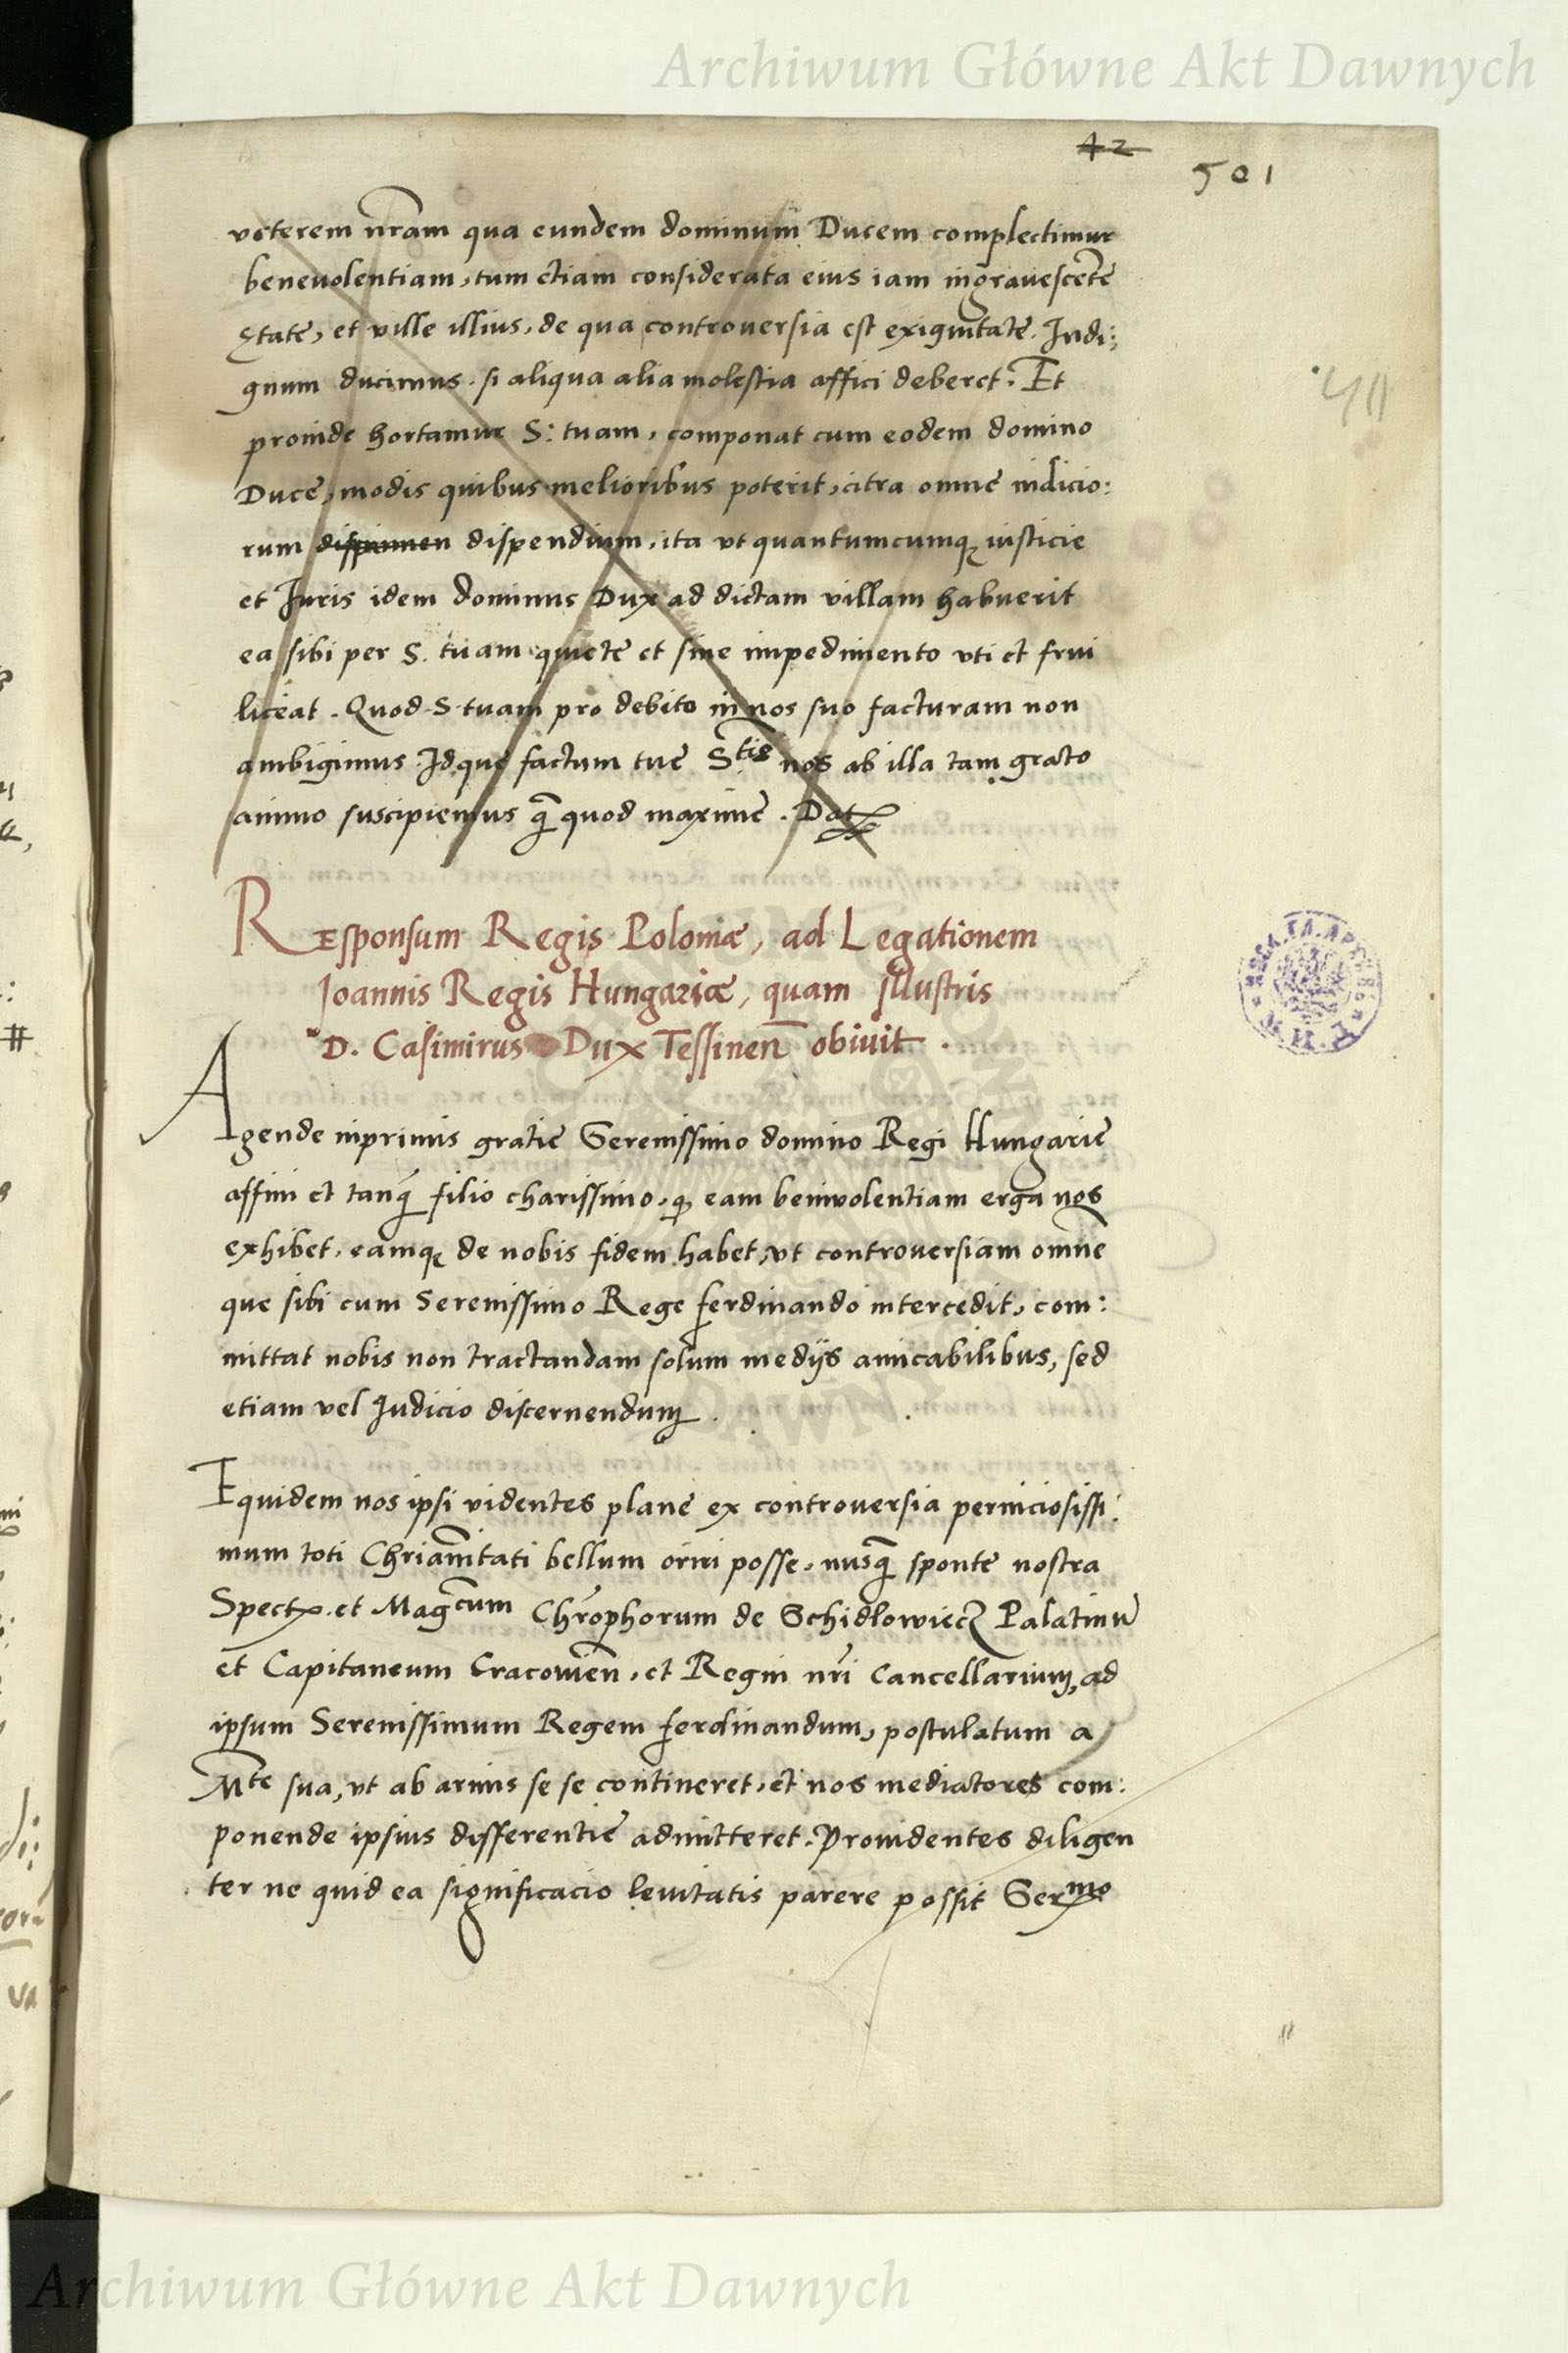 Archiwum Główne Akt Dawnych
42
501
veterem nram qua eundem dominum Ducem complectimur
benevolentiam, tum etiam considerata eius iam ingravescente
ętate, et ville illius, de qua controversia est exiguitate. Indi:
gnum ducimus. si aliqua alia molestia affici deberet. Et
proinde hortamur S: tuam, componat cum eodem domino
Duce, modis quibus melioribus poterit, citra omne iudicio:
rum dispendium, ita ut quantumcumq iusticie
et Iuris idem dominus Dux ad dictam villam habuerit
ea sibi per S. tuam quiete et sine impedimento uti et frui
liceat. Quod S. tuam pro debito in nos suo facturam non
ambigimus. Idque factum tue Stis nos ab illa tam grato
animo suscipiemus q̃ quod maxime. Dat
REsponsum Regis Poloniæ, ad Legationem
Joannis Regis Hungariæ, quam Illustris
D. Casimirus Dux Tessinen̄ obivit.
Agende inprimis gratie Serenissimo domino Regi Hungarie
affini et tanq̃ filio charissimo, q eam benivolentiam erga nos
exhibet, eamq de nobis fidem habet, ut controversiam omne
que sibi cum Serenissimo Rege ferdinando intercedit, com:
mittat nobis non tractandam solum medijs amicabilibus, sed
etiam vel Iudicio discernendum.
Equidem nos ipsi videntes plane ex controversia perniciosissi:
mum toti Chrianitati bellum oriri posse, nusq̃ sponte nostra
Spect. et Magcum Chrophorum de Schidlowiecz Palatinū
et Capitaneum Cracovien̄, et Regni nri Cancellarium, ad
ipsum Serenissimum Regem ferdinandum, postulatum a
Mte sua, ut ab armis se se contineret, et nos mediatores com:
ponende ipsius differentie admitteret. Providentes diligen
ter ne quid ea significacio levitatis parere possit Sermo
Archiwum Główne Akt Dawnych